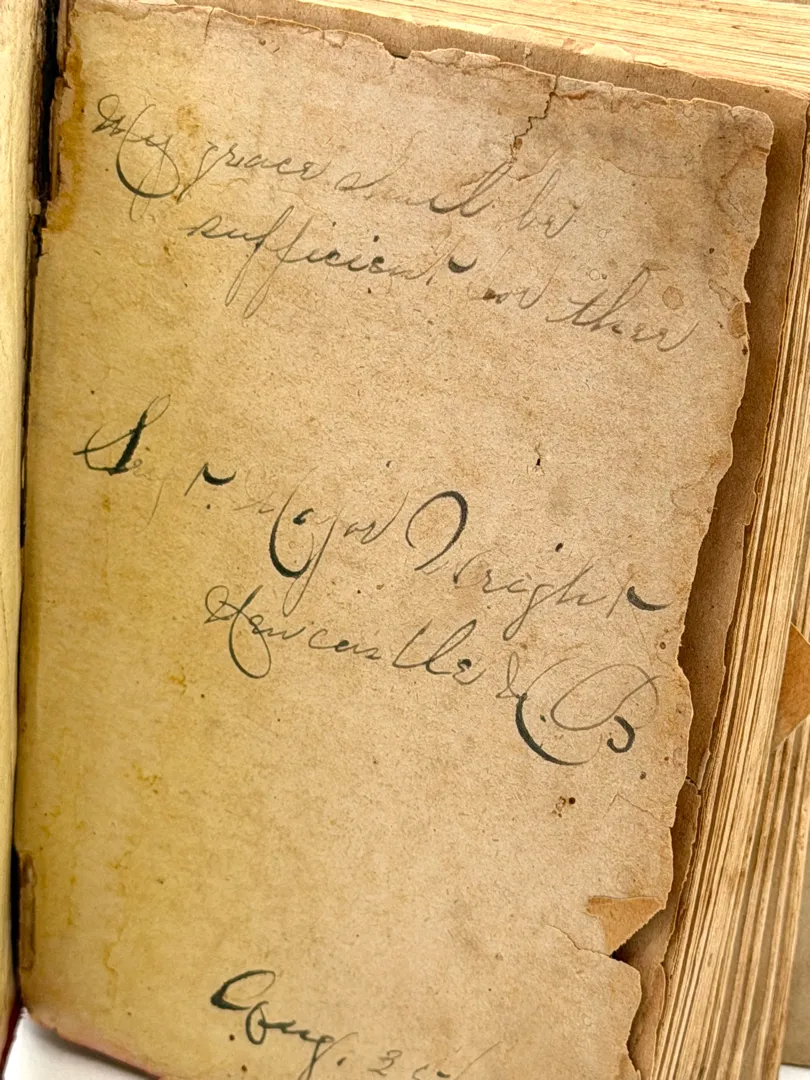 My grace shall be
sufficient for thee
Serg't. Major Wright
Newcastle N. B
Aug. 3